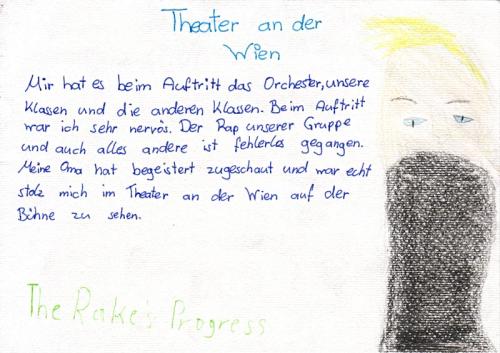 Theater an der
Wien
Mir hat es beim Auftritt das Orchester, unsere
Klassen und die anderen Klassen. Beim Auftritt
war ich sehr nervös. Der Rap unserer Gruppe
und auch alles andere ist fehlerlos gegangen.
Meine Oma hat begeistert zugeschaut und war echt
stolz mich im Theater an der Wien auf der
Bühne zu sehen.
The Rake's Progress